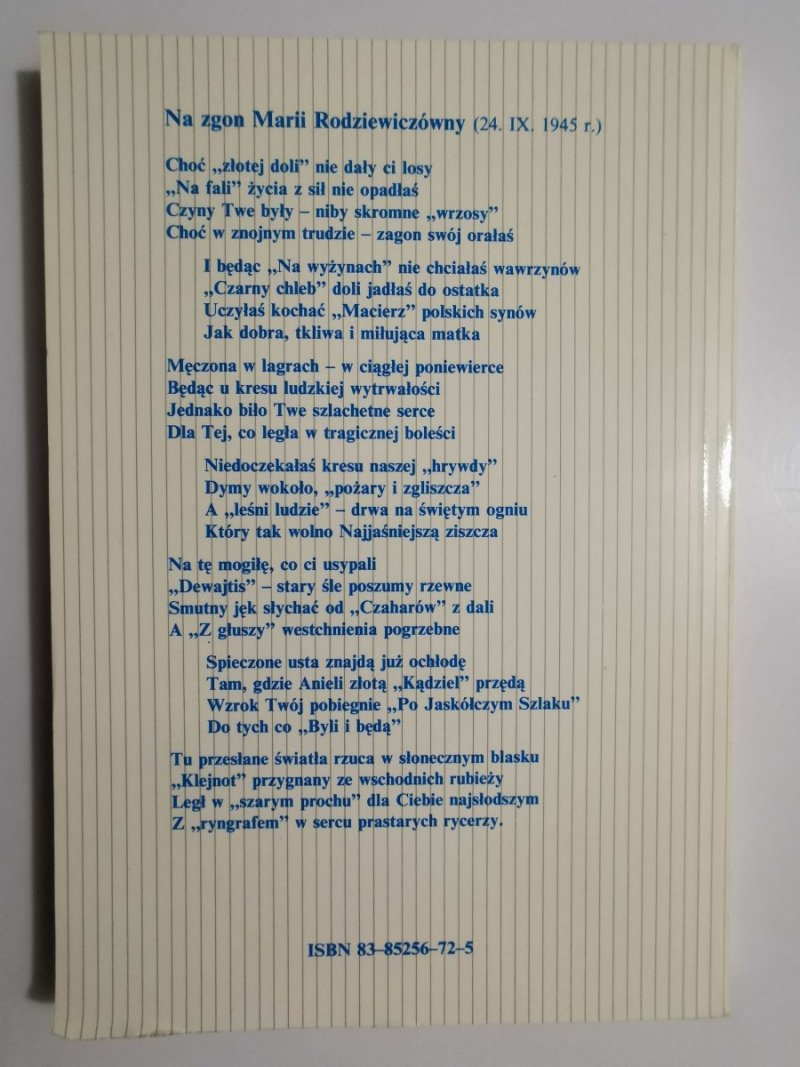 Na zgon Marii Rodziewiczówny (24. IX. 1945 r.)
Choć „złotej doli” nie dały ci losy
„Na fali” życia z sił nie opadłaś
Czyny Twe były – niby skromne „wrzosy”
Choć w znojnym trudzie – zagon swój orałaś
I będąc „Na wyżynach” nie chciałaś wawrzynów
„Czarny chleb” doli jadłaś do ostatka
Uczyłaś kochać „Macierz” polskich synów
Jak dobra, tkliwa i miłująca matka
Męczona w lagrach – w ciągłej poniewierce
Będąc u kresu ludzkiej wytrwałości
Jednako biło Twe szlachetne serce
Dla Tej, co legła w tragicznej boleści
Niedoczekałaś kresu naszej „hrywdy”
Dymy wokoło, „pożary i zgliszcza”
A „leśni ludzie” – drwa na świętym ogniu
Który tak wolno Najjaśniejszą ziszcza
Na tę mogiłę, co ci usypali
„Dewajtis” – stary śle poszumy rzewne
Smutny jęk słychać od „Czaharów” z dali
A „Z głuszy” westchnienia pogrzebne
Spieczone usta znajdą już ochłodę
Tam, gdzie Anieli złotą „Kądziel” przędą
Wzrok Twój pobiegnie „Po Jaskółczym Szlaku”
Do tych co „Byli i będą”
Tu przesłane światła rzuca w słonecznym blasku
„Klejnot” przygnany ze wschodnich rubieży
Legł w „szarym prochu” dla Ciebie najsłodszym
Z „ryngrafem” w sercu prastarych rycerzy.
ISBN 83–85256–72–5